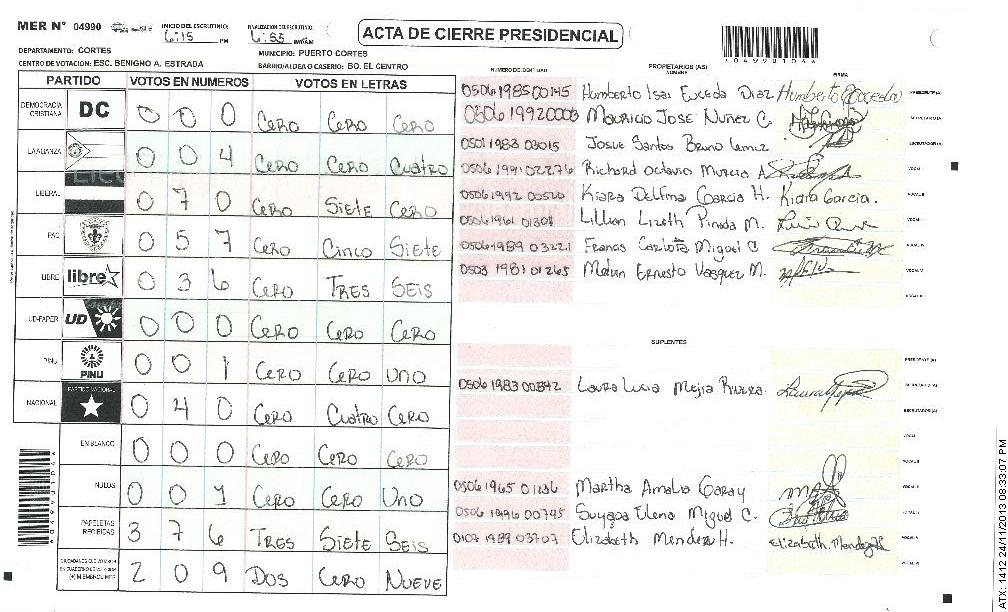 MER Nº 04990 INICIO DEL ESCRUTINIO: 6:15 PM FINALIZACION DEL ESCRUTINIO: 6:55 ACTA DE CIERRE PRESIDENCIAL
DEPARTAMENTO: CORTES MUNICIPIO: PUERTO CORTES
CENTRO DE VOTACION: ESC. BENIGNO A. ESTRADA BARRIO/ALDEA O CASERIO: BO. EL CENTRO
PARTIDO VOTOS EN NUMEROS VOTOS EN LETRAS
DEMOCRACIA CRISTIANA DC 0 0 0 CERO CERO CERO
LA ALIANZA 0 0 4 CERO CERO CUATRO
LIBERAL 0 7 0 CERO SIETE CERO
PAC 0 5 7 CERO CINCO SIETE
LIBRE libre 0 3 6 CERO TRES SEIS
UD-FAPER UD 0 0 0 CERO CERO CERO
PINU PINU 0 0 1 CERO CERO UNO
NACIONAL PARTIDO NACIONAL 0 4 0 CERO CUATRO CERO
EN BLANCO 0 0 0 CERO CERO CERO
NULOS 0 0 1 CERO CERO UNO
PAPELETAS RECIBIDAS 3 7 6 TRES SIETE SEIS
(+) MIEMBROS MER 2 0 9 DOS CERO NUEVE
NUMERO DE IDENTIDAD PROPIETARIOS (AS) NOMBRE FIRMA
0506 1985 00145 Humberto Isai Euceda Diaz Humberto Euceda PRESIDENTE (A)
Mauricio Jose Nuñez C. SECRETARIO (A)
0501 1983 03015 Josue Santos Bruno ESCRUTADOR (A)
0506 1991 02276 Richard Octavio Murcia A. VOCAL I
0506 1992 00520 Kiara Delfina Garcia H. Kiara Garcia.
0506 1961 01304 Lillian Lizeth Pineda M.
0506 1989 03221 Carlota Miguel C VOCAL IV
0503 1981 01265 Melvin Ernesto Vasquez M. VOCAL V
SUPLENTES
PRESIDENTE (A)
0506 1983 00892 Laura Lucia Mejia Rivera.
ESCRUTADOR (A)
0506 1965 01236 Martha Amalia Garay
0506 1996 00795 Suyapa Elena Miguel C.
0107 1989 03707 Elizabeth Mendez H. Elizabeth Mendez H
ATX: 1412 24/11/2013 08:33:07 PM